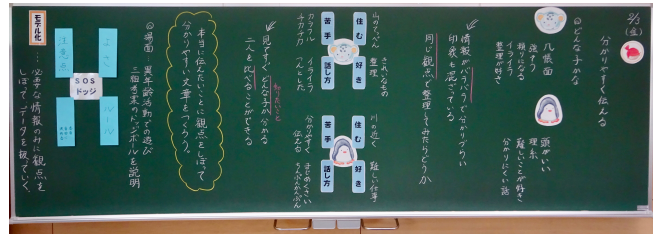 2/3
(金)
分かりやすく伝える
◎どんな子かな
几帳面
強すぎ
頼りになる
イライラ
整理が好き
頭がいい
理系
難しいことが好き
分かりにくい話
情報がバラバラで分かりづらい
印象も混ざっている
同じ観点で整理してみたらどうか
山のてっぺん
きれいなもの
整理
住む
好き
苦手
話し方
カラフル
チカチカ
イライラ
ツンとした
川の近く
難しい仕事
住む
好き
苦手
話し方
分かりやすく
伝える
まじめくさい
ちんぷんかんぷん
見やすくどんな子か分かる
知りたいこと
二人を比べることができる
本当に伝えたいことに観点をしぼって
分かりやすい文章をつくろう。
◎場面 異年齢活動での遊び
三組考案のドッジボールを説明
よさ
ルール
SOS
ドッジ
注意点
モデル化
…必要な情報のみに観点を
しぼって、データを破っていく。